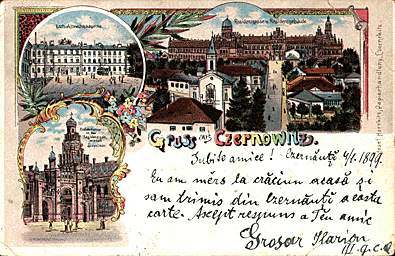 Gruss aus Czernowitz.
Iubite amice! Czernăutz 6/1. 1899.
Eu am mers la crăciun acasă și
am trimis din Czernăutz aceasta
carte. Ascept respuns a Tĕu amic
Grosar Ilarion
III. g. c. a